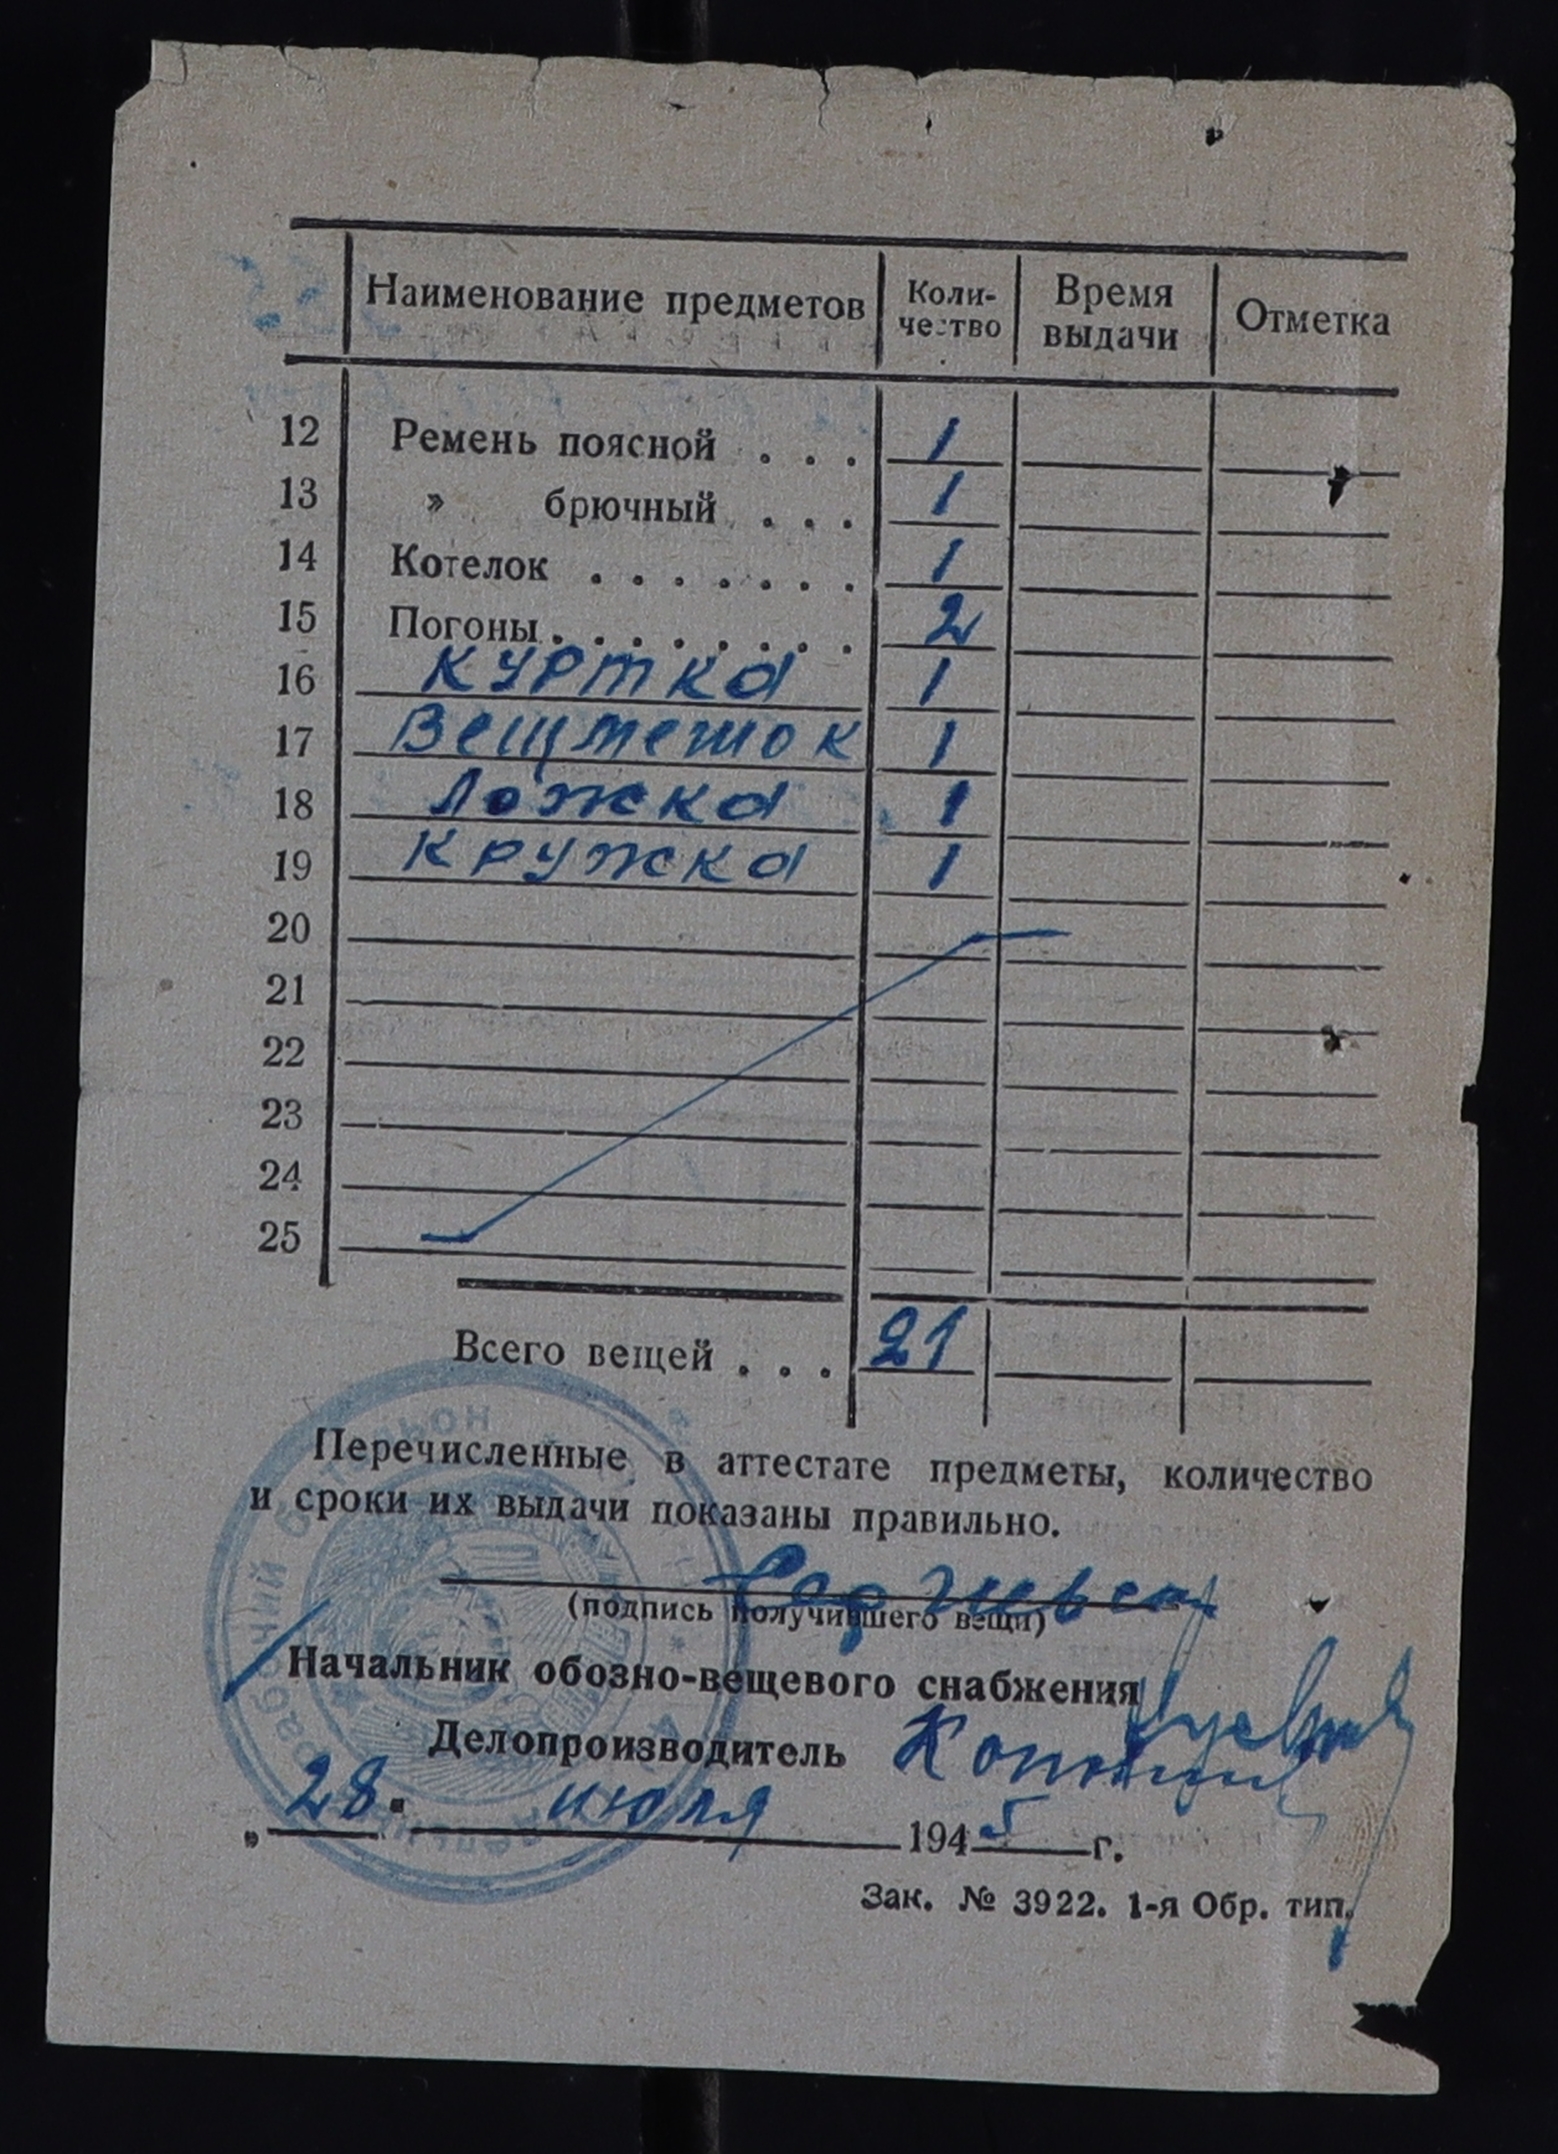 Наименование предметов Коли- Время Отметка
чество выдачи
12 Ремень поясной . . . 1
13 » брючный . . . 1
14 Котелок . . . . . . . 1
15 Погоны . . . . . . . . 2
16 Куртка 1
17 Вещмешок 1
18 Ложка 1
19 Кружка 1
20
21
22
23
24
25
Всего вещей . . . 21
Перечисленные в аттестате предметы, количество
и сроки их выдачи показаны правильно.
(подпись получившего вещи)
Начальник обозно-вещевого снабжения
Делопроизводитель
„ 28 " июля 1945 г.
Зак. № 3922. 1-я Обр. тип.